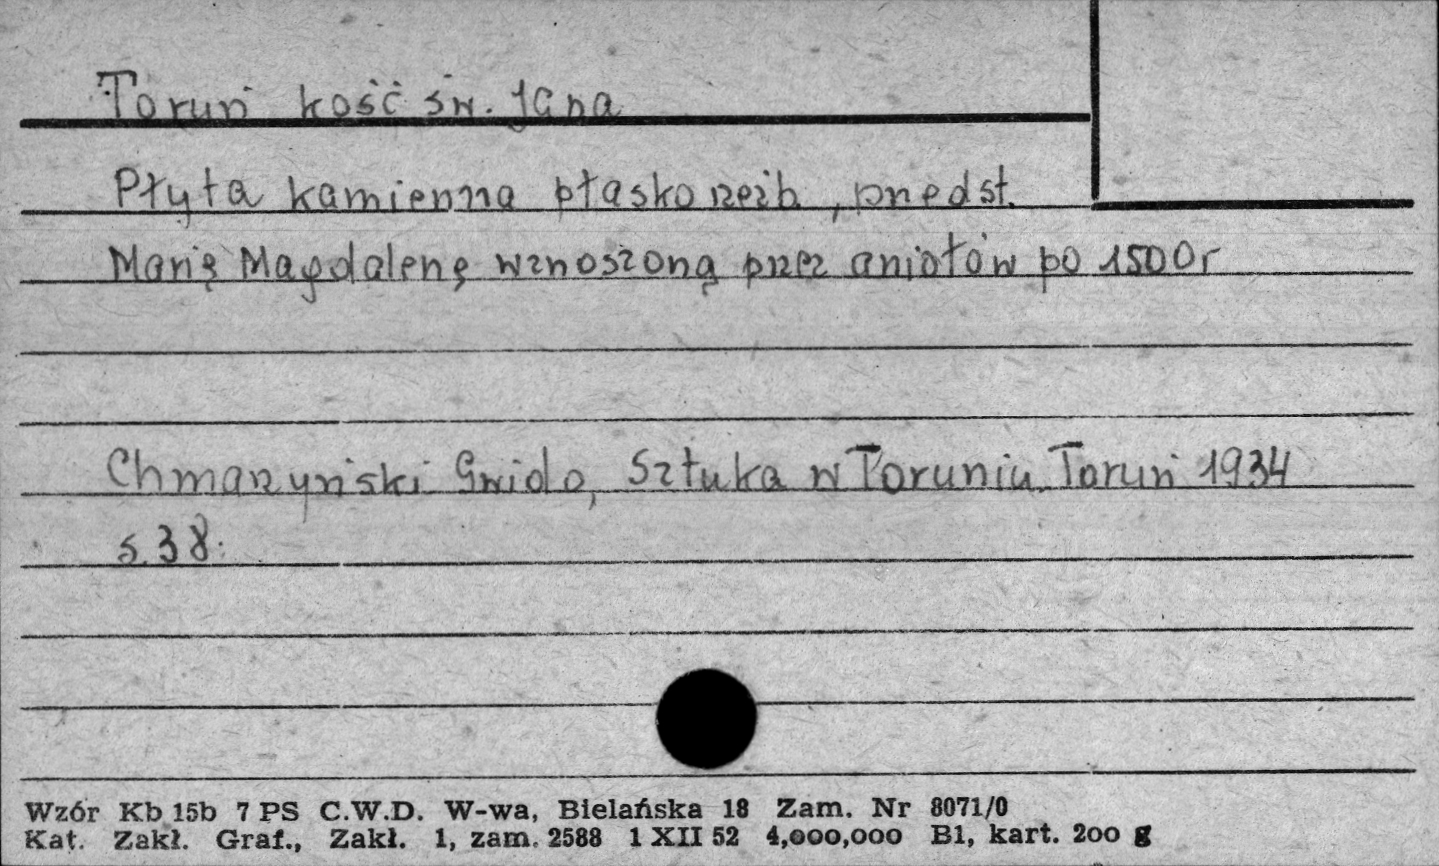 Toruń kość św. Jana
Płyta kamienna płaskorzeźb, przedst.
Marię Magdalenę wznoszoną przez aniołów po 1500r
Chmarzyński Gwido, Sztuka w Toruniu. Toruń 1934
s. 38.
Wzór Kb 15b 7 PS C.W.D. W-wa, Bielańska 18 Zam. Nr 8071/0
Kat. Zakł. Graf., Zakł. 1, zam. 2588 1 XII 52 4,000,000 B1, kart. 200 g